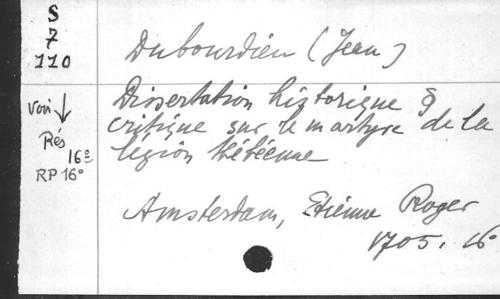 S
7
110
Dubourdieu (Jean)
voir
Rés
16º
RP 16º
Dissertation historique &
critique sur le martyre de la
légion thébéenne
Amsterdam, Etienne Roger
1705. 16º